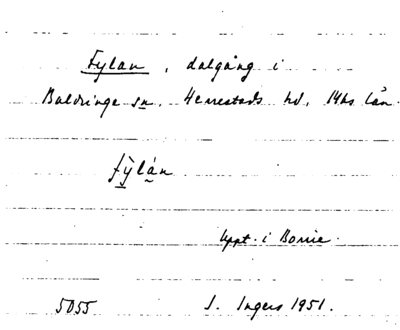 Fylan, dalgång i
Baldringe sn. Herrestads hd, Mhs län.
fỳlán
uppt. i Borrie.
5055 J. Ingers 1951.